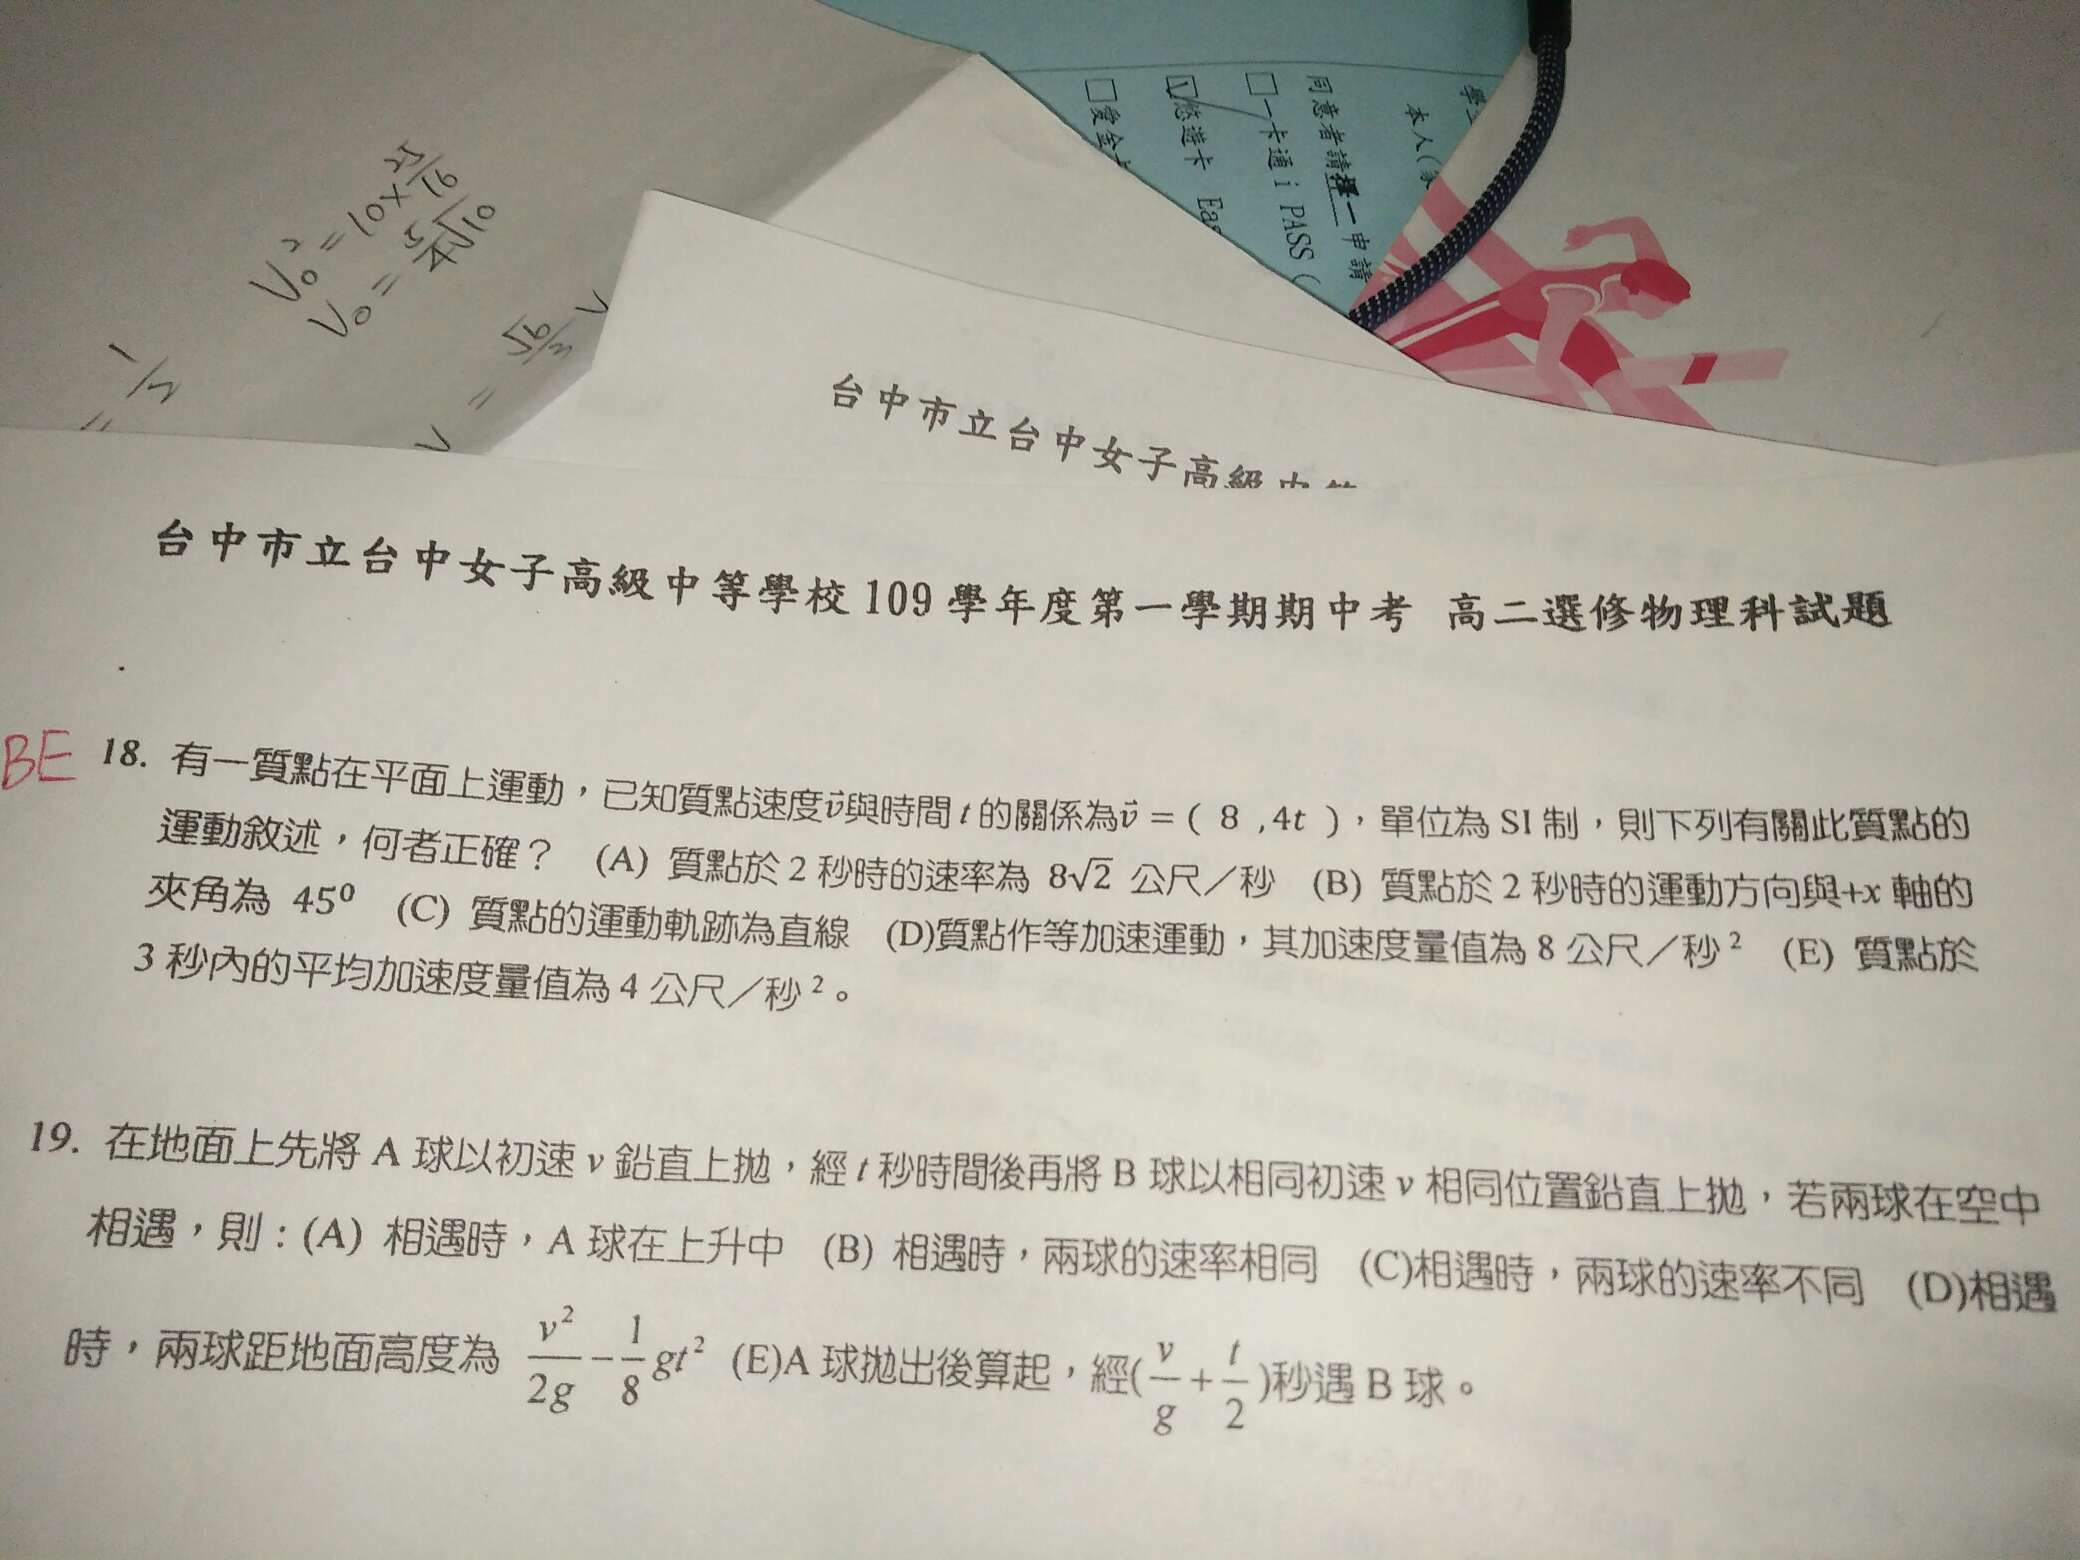 學生
本人(家
同意者請擇一申請
□一卡通 i PASS (
☑悠遊卡 Eas
□愛金卡
V₀² = 10 × 25/16
V₀ = 5√10/4
= 1/2
V = √6/3 V
台中市立台中女子高級中等
台中市立台中女子高級中等學校 109 學年度第一學期期中考 高二選修物理科試題
BE 18. 有一質點在平面上運動，已知質點速度v⃗與時間 t 的關係為v⃗ = ( 8 ,4t )，單位為 SI 制，則下列有關此質點的
運動敘述，何者正確？ (A) 質點於 2 秒時的速率為 8√2 公尺／秒 (B) 質點於 2 秒時的運動方向與+x 軸的
夾角為 45⁰ (C) 質點的運動軌跡為直線 (D)質點作等加速運動，其加速度量值為 8 公尺／秒² (E) 質點於
3 秒內的平均加速度量值為 4 公尺／秒²。
19. 在地面上先將 A 球以初速 v 鉛直上拋，經 t 秒時間後再將 B 球以相同初速 v 相同位置鉛直上拋，若兩球在空中
相遇，則：(A) 相遇時，A 球在上升中 (B) 相遇時，兩球的速率相同 (C)相遇時，兩球的速率不同 (D)相遇
時，兩球距地面高度為 v²/2g − 1/8 gt² (E)A 球拋出後算起，經(v/g + t/2)秒遇 B 球。